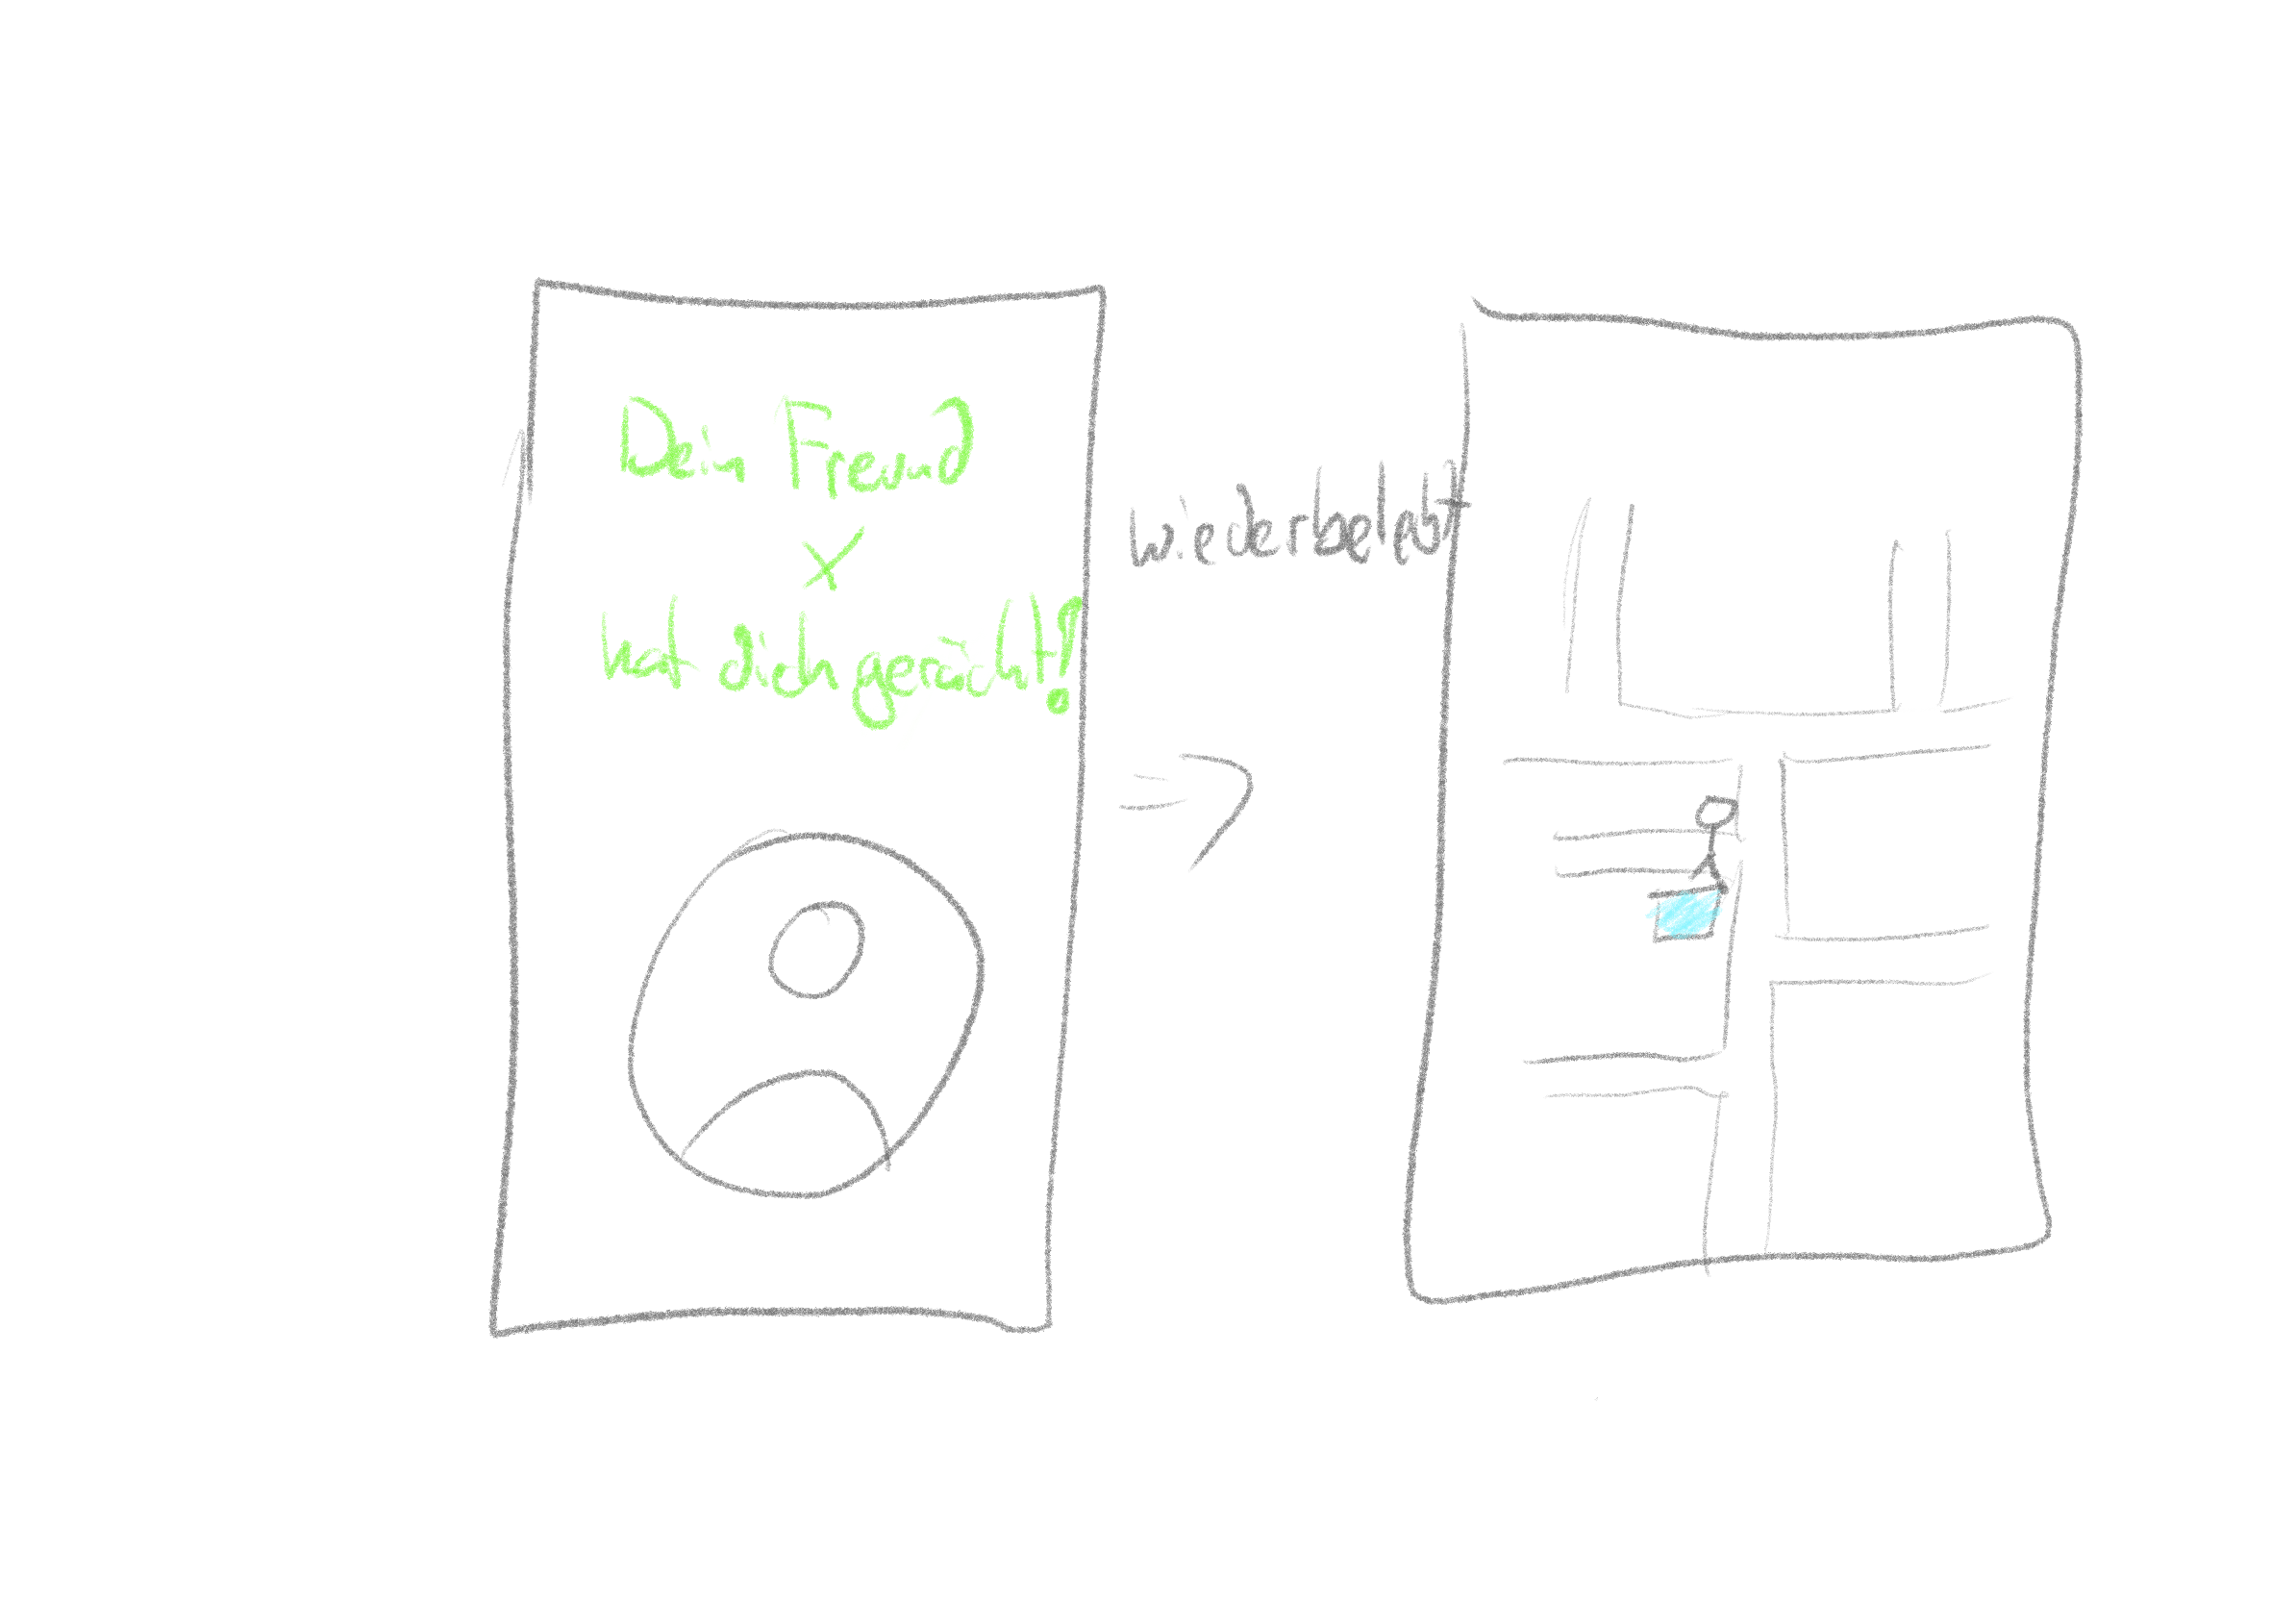 Dein Freund
X
hat dich gerächt!
wiederbelebt